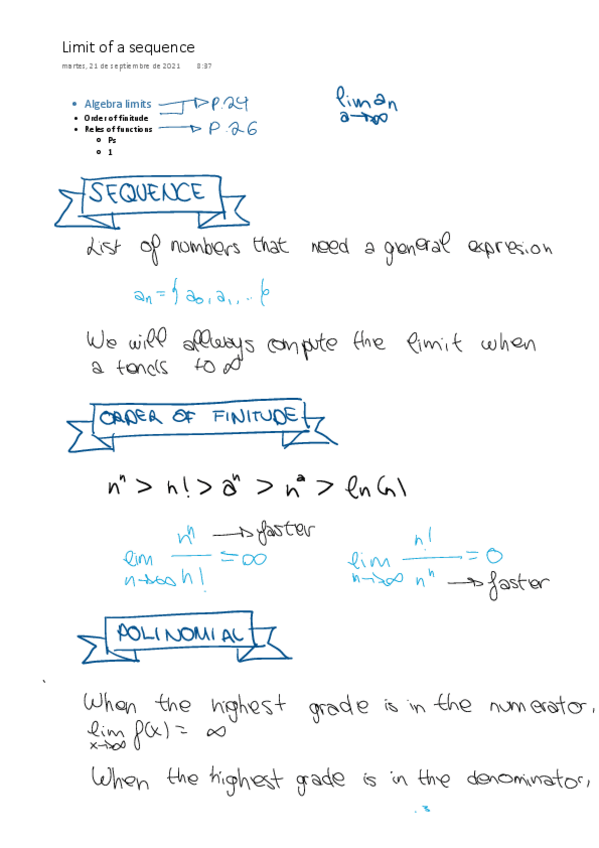 Limit of a sequence
martes, 21 de septiembre de 2021 8:37
• Algebra limits → P.24
lim an
a→∞
• Order of finitude
• Reles of functions → P.26
○ Ps
○ 1
SEQUENCE
List of numbers that need a general expresion
an = { a0, a1, .. }
We will allways compute the limit when
a tends to ∞
ORDER OF FINITUDE
n^n > n! > a^n > n^a > ln(n)
lim n→∞ n^n / n! = ∞ → faster
lim n→∞ n! / n^n = 0 → faster
POLINOMIAL
When the highest grade is in the numerator,
lim f(x) = ∞
x→∞
When the highest grade is in the denominator,